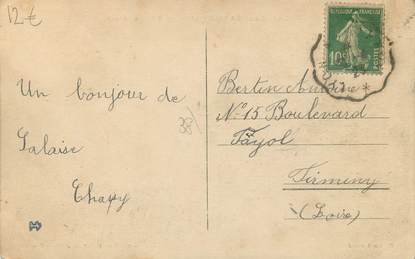 12.€
Un bonjour de
Salaise
Chapy
38/
REPUBLIQUE FRANÇAISE
10c
POSTES
Bertin Antoine
N° 15 Boulevard
Fayol
Firminy
(Loire)